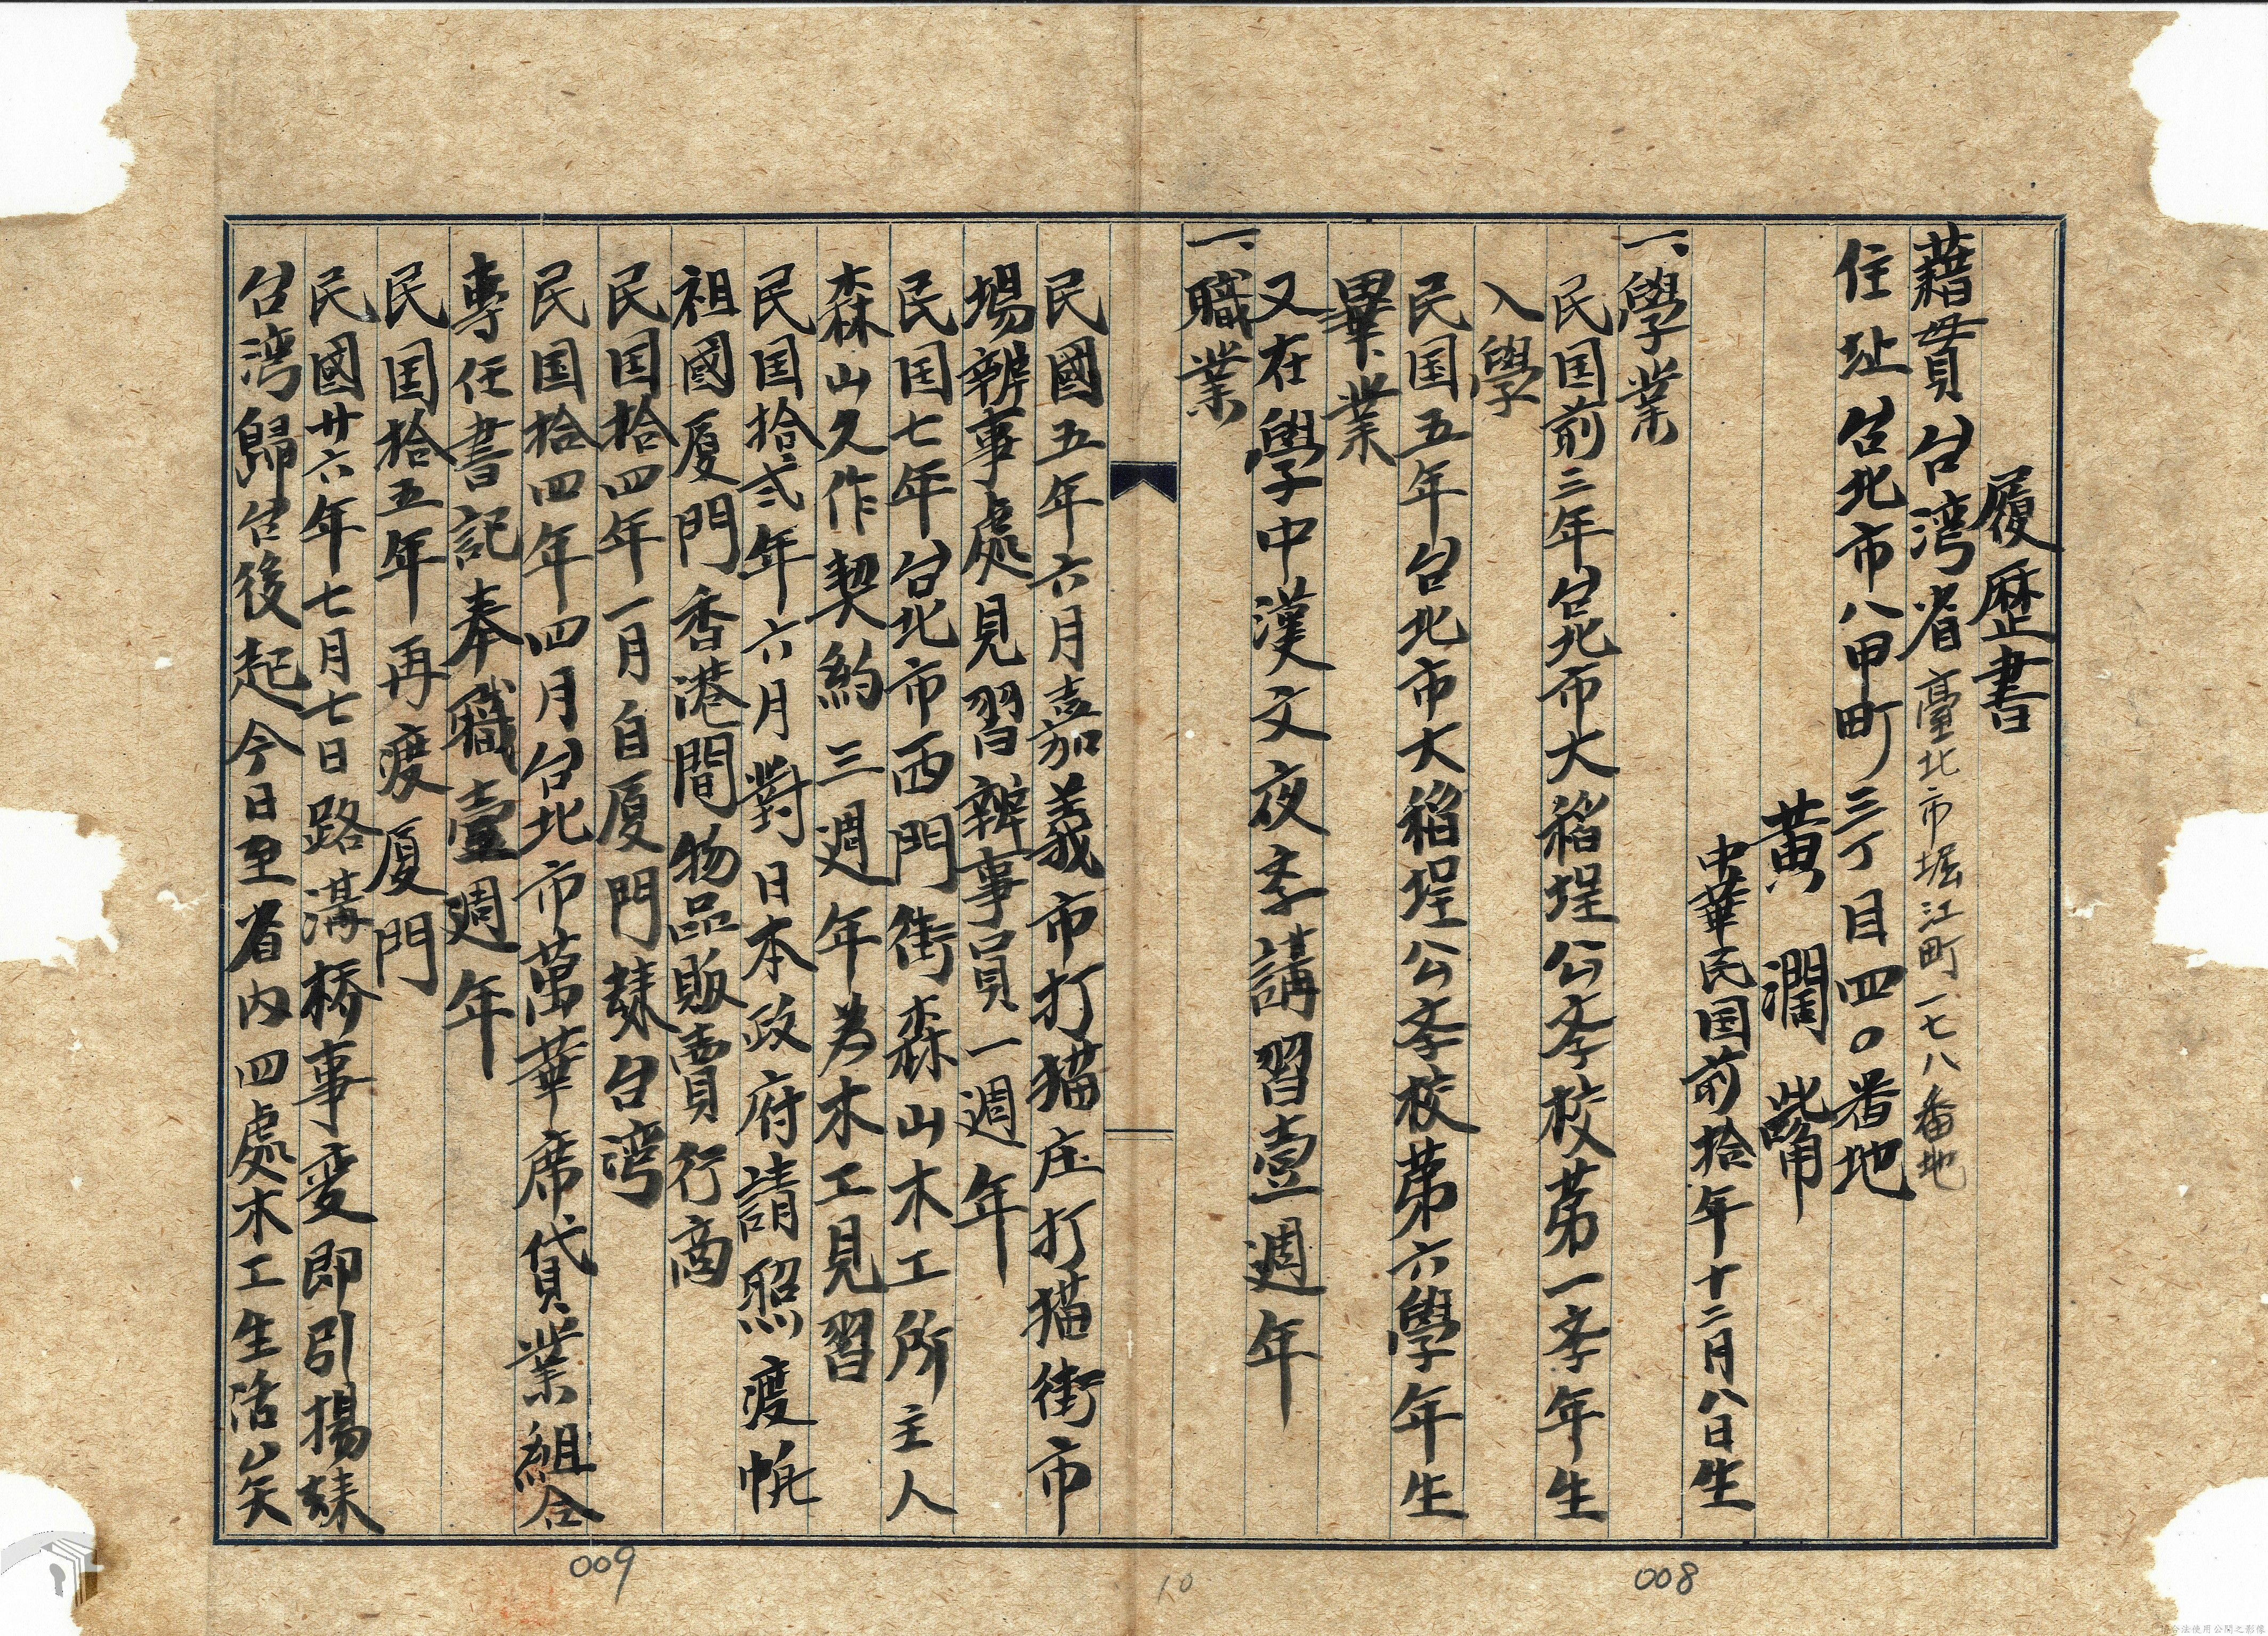 履歷書
藉貫 台湾省 臺北市堀江町一七八番地
住址 台北市八甲町三丁目四〇番地
黃潤
中華民国前拾年十二月八日生
一、學業
民国前三年台北市大稻埕公斈校苐一斈年生
入學
民国五年台北市大稻埕公斈校苐六學年生
畢業
又在學中漢文夜斈講習壹週年
一、職業
民國五年六月嘉義市打猫庄打猫街市
場辦事處見習辦事員一週年
民国七年台北市西門街森山木工所主人
森山久作契約三週年為木工見習
民国拾弍年六月對日本政府請照渡
祖國厦門香港間物品販賣行商
民国拾四年一月自厦門台湾
民国拾四年四月台北市萬華席貸業組合
專任書記奉職壹週年
民国拾五年再渡厦門
民國廿六年七月七日路溝橋事変即引揚
台湾歸台後起今日至省内四處木工生活矣
009
10
008